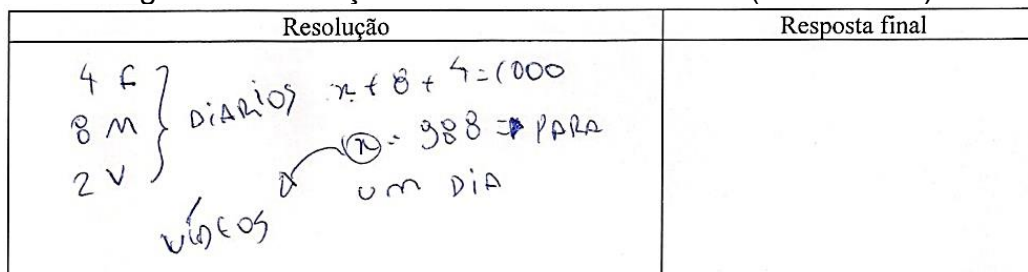 Resolução Resposta final
4 F
8 M
2 V
DIÁRIOS x + 8 + 4 = 1000
x = 988 => PARA
UM DIA
VÍDEOS